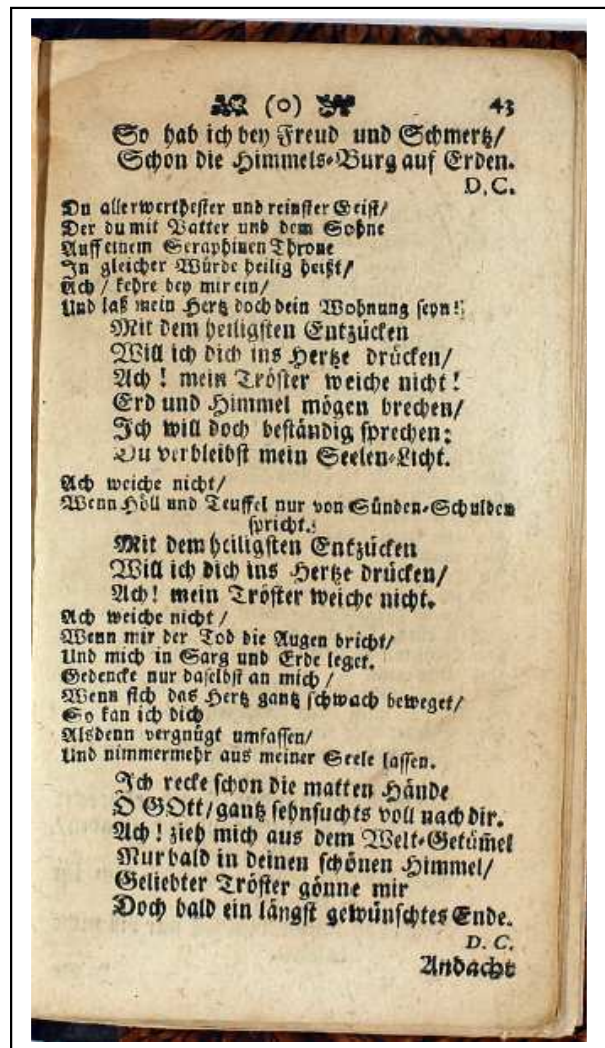 (o) 43
So hab ich bey Freud und Schmertz/
Schon die Himmels-Burg auf Erden.
D.C.
Du allerwerthester und reinster Geist/
Der du mit Vatter und dem Sohne
Auff einem Seraphinen Throne
In gleicher Würde heilig heißt/
Ach / kehre bey mir ein/
Und laß mein Hertz doch dein Wohnung seyn!
Mit dem heiligsten Entzücken
Will ich dich ins Hertze drücken/
Ach! mein Tröster weiche nicht!
Erd und Himmel mögen brechen/
Ich will doch beständig sprechen:
Du verbleibst mein Seelen-Licht.
Ach weiche nicht/
Wenn Höll und Teuffel nur von Sünden-Schulden
spricht.
Mit dem heiligsten Entzücken
Will ich dich ins Hertze drücken/
Ach! mein Tröster weiche nicht.
Ach weiche nicht /
Wenn mir der Tod die Augen bricht/
Und mich in Sarg und Erde leget.
Gedencke nur daselbst an mich /
Wenn sich das Hertz gantz schwach beweget/
So kan ich dich
Alsdenn vergnügt umfassen/
Und nimmermehr aus meiner Seele lassen.
Ich recke schon die matten Hände
O GOtt/ gantz sehnsuchts voll nach dir.
Ach! zieh mich aus dem Welt-Getüm̃el
Nur bald in deinen schönen Himmel/
Geliebter Tröster gönne mir
Doch bald ein längst gewünschtes Ende.
D. C.
Andacht